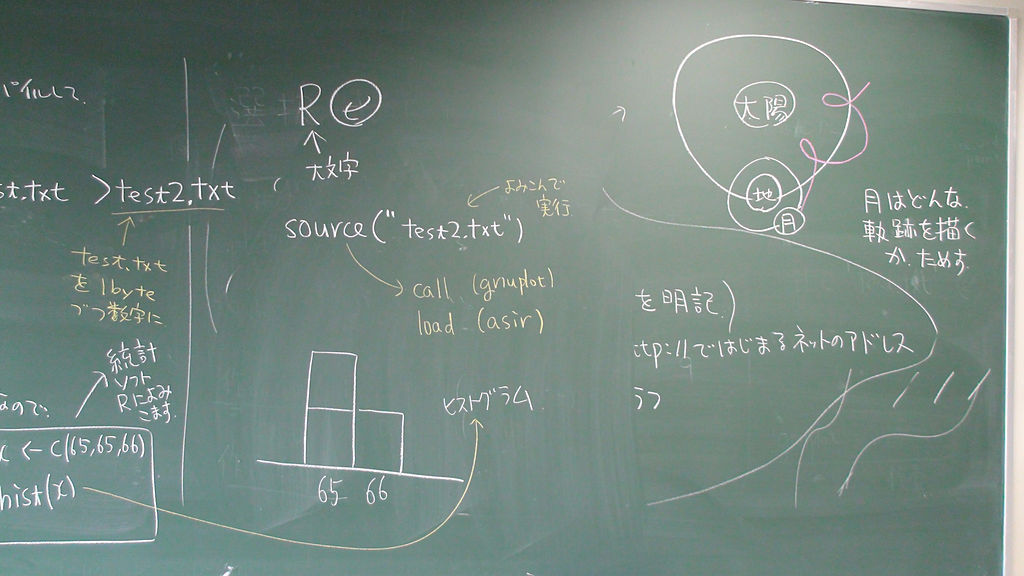 パイルして.
st.txt >test2.txt
test.txt
を1byte
づつ数字に
統計
ソフト
Rによみ
こます.
なので.
x ← c(65,65,66)
hist(x)
R
大文字
よみこんで
実行
source("test2.txt")
call (gnuplot)
load (asir)
65 66
ヒストグラム.
太陽
地
月
月はどんな.
軌跡を描く
か.ためす.
を明記.)
ttp://ではじまるネットのアドレス